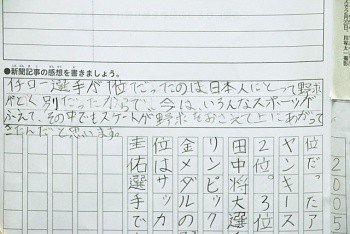 ●新聞記事の感想を書きましょう。
イチロー選手が1位だったのは日本人にとって野球
がとく別だったからで、今は、いろんなスポーツが
ふえて、その中でもスケートが野球をおさえて上にあがって
きたんだと思います。
位だったア
ヤンキース
2位。3位
田中将大選
リンピック
金メダルの
位はサッカ
圭佑選手で
2005